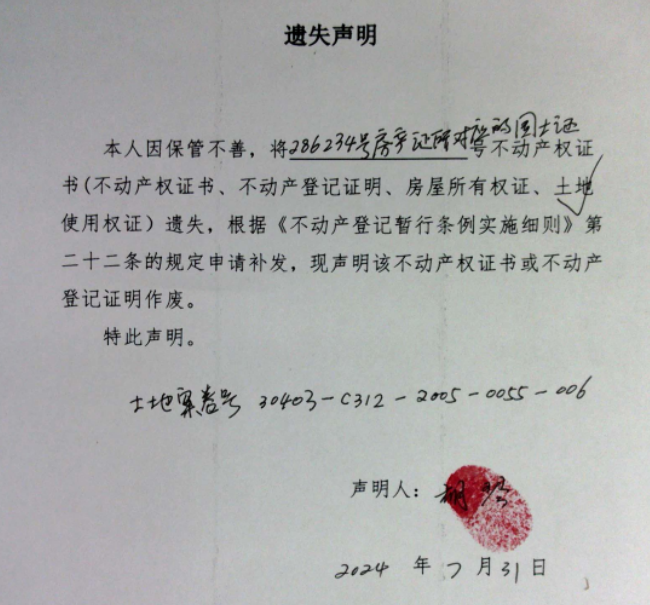 遗失声明
本人因保管不善，将286234号房产证所对应的国土证号不动产权证
书(不动产权证书、不动产登记证明、房屋所有权证、土地
使用权证）遗失，根据《不动产登记暂行条例实施细则》第
二十二条的规定申请补发，现声明该不动产权证书或不动产
登记证明作废。
特此声明。
土地案卷号 30403-C312-2005-0055-006
声明人：胡
2024 年 7 月 31 日